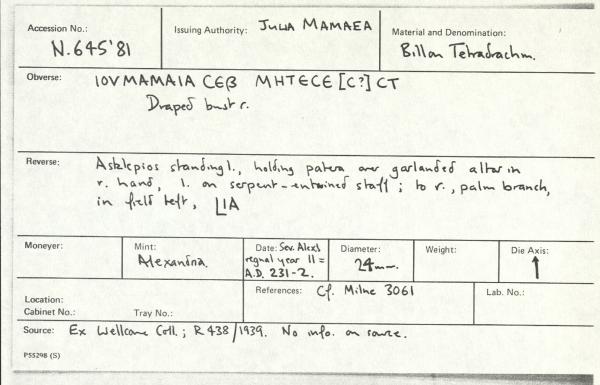 Accession No.: N.645'81
Issuing Authority: JULIA MAMAEA
Material and Denomination: Billon Tetradrachm.
Obverse: ΙΟVΜΑΜΑΙΑ CЄβ ΜΗΤЄCЄ [C?] CΤ
Draped bust r.
Reverse: Asklepios standing l., holding patera over garlanded altar in
r. hand, l. on serpent-entwined staff; to r., palm branch,
in field left, LIA
Moneyer:
Mint: Alexandria.
Date: Sev. Alex's
regnal year 11 =
A.D. 231-2.
Diameter: 24mm.
Weight:
Die Axis: ↑
Location:
Cabinet No.: Tray No.:
References: Cf. Milne 3061
Lab. No.:
Source: Ex Wellcome Coll.; R438/1939. No info. on source.
P55298 (S)